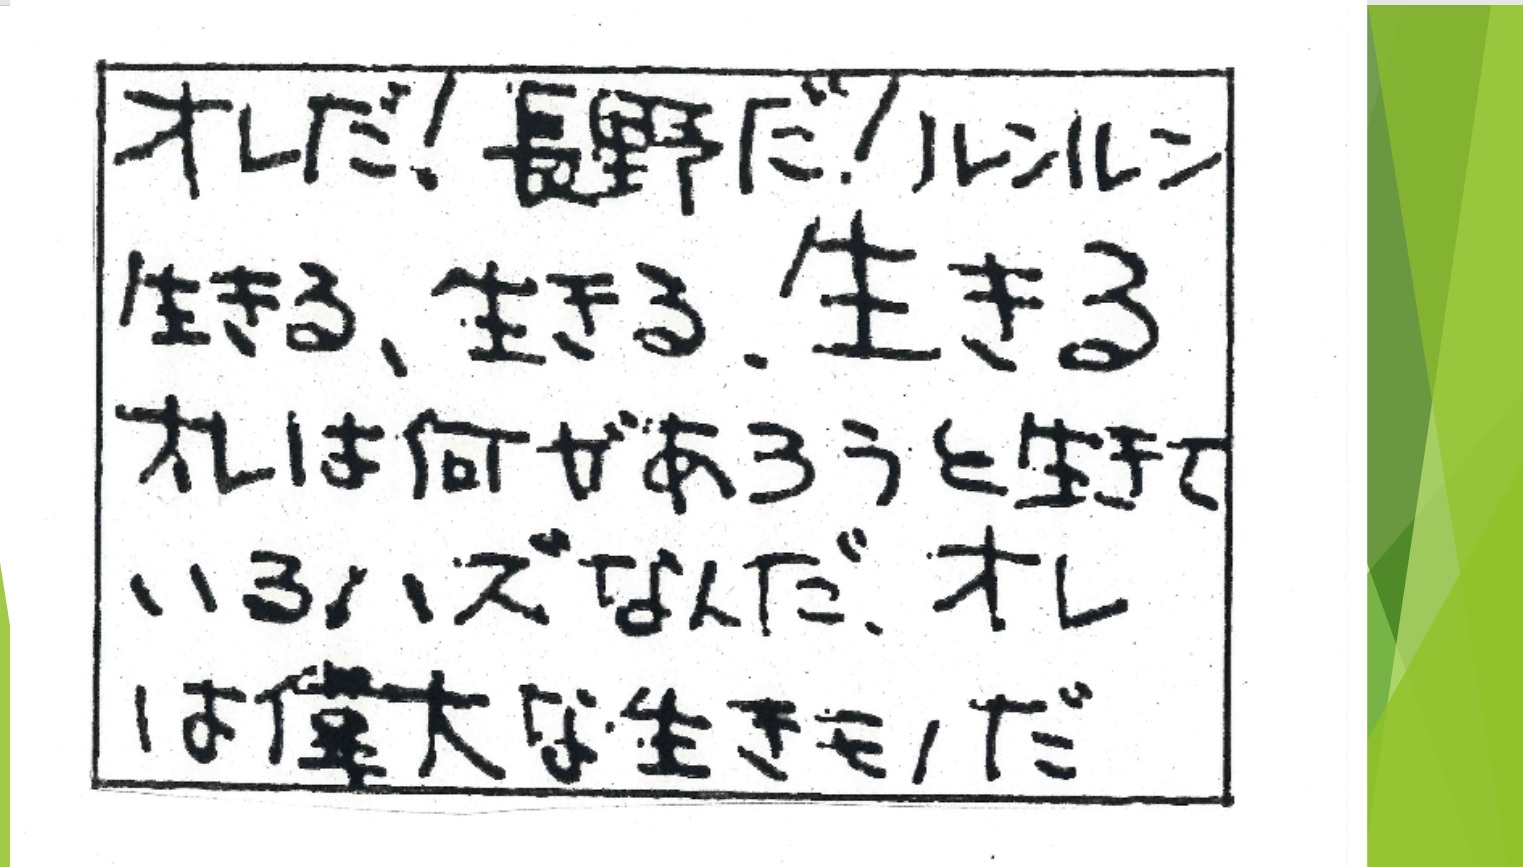 オレだ!長野だ!ルンルン
生きる、生きる、生きる
オレは何ぜあろうと生きて
いるハズなんだ、オレ
は偉大な生きモノだ